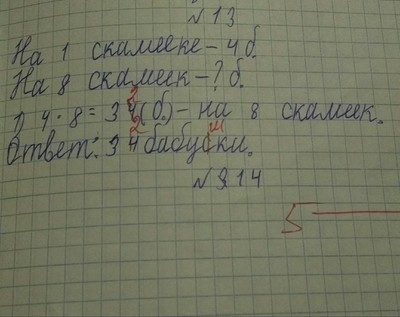 №13
На 1 скамейке – 4 б.
На 8 скамеек – ? б.
1) 4 · 8 = 34 (б.) – на 8 скамеек.
2
Ответ: 34 бабуски.
2 ш
№ 314
5